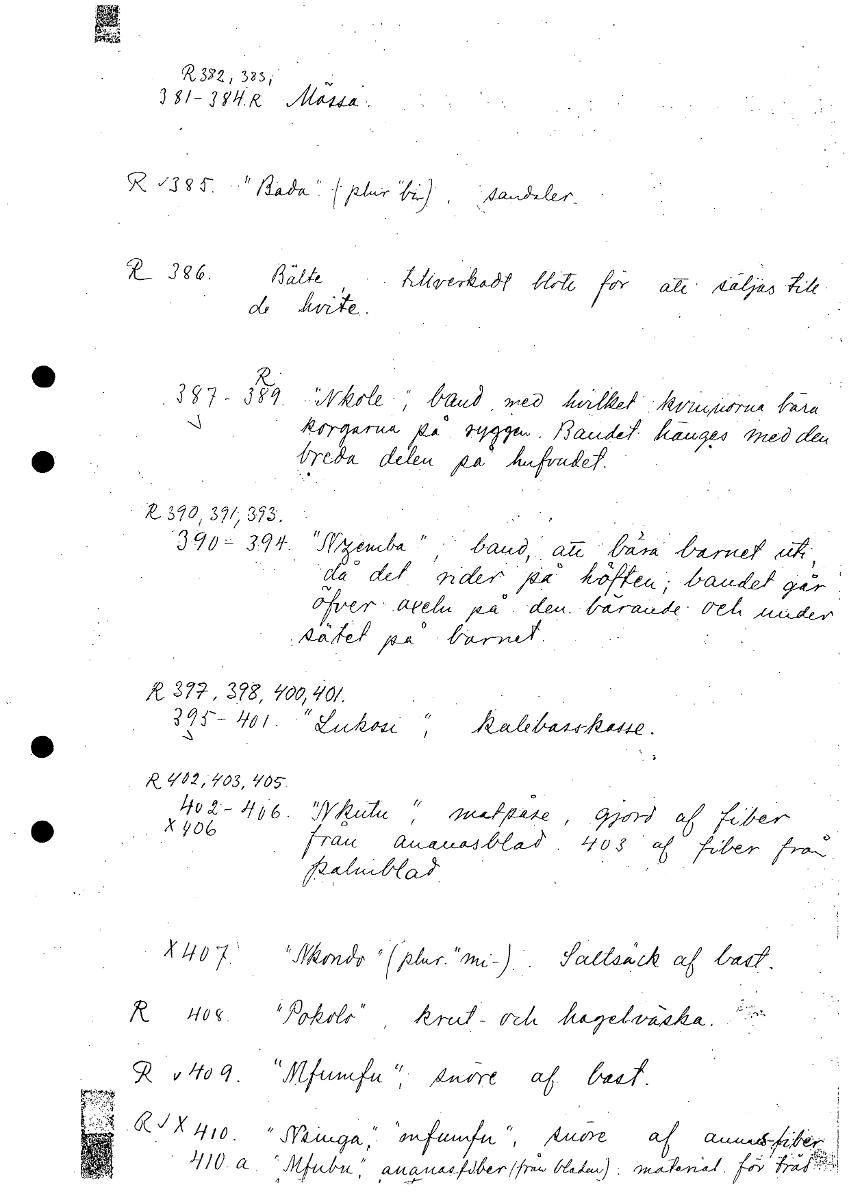 R 382, 383,
381-384.R Mössa.
R √385. "Bada" (plur "bi-). sandaler.
R 386. Bälte, tillverkadt blott för att säljas till
de hvite.
R
387-389. "Nkole", band med hvilket kvinnorna bära
√
korgarna på ryggen. Bandet hänges med den
breda delen på hufvudet.
R 390, 391, 393.
390-394. "Nzemba", band, att bära barnet uti,
då det rider på höften; bandet går
öfver axeln på den bärande och under
sätet på barnet.
R 397, 398, 400, 401.
395-401. "Lukosi", kalebasskasse.
√
R 402, 403, 405.
402-406. "Nkutu", matpåse, gjord af fiber
X 406
från ananasblad. 403 af fiber från
palmblad
X 407. "Nkondo" (plur. "mi-). Saltsäck af bast.
R 408. "Pokolo", krut- och hagelväska.
R √ 409. "Mfumfu", snöre af bast.
R √ X 410. "Nsinga", "mfumfu", snöre af ananasfiber
410.a. "Mfubu", ananasfiber (från bladen). material för tråd